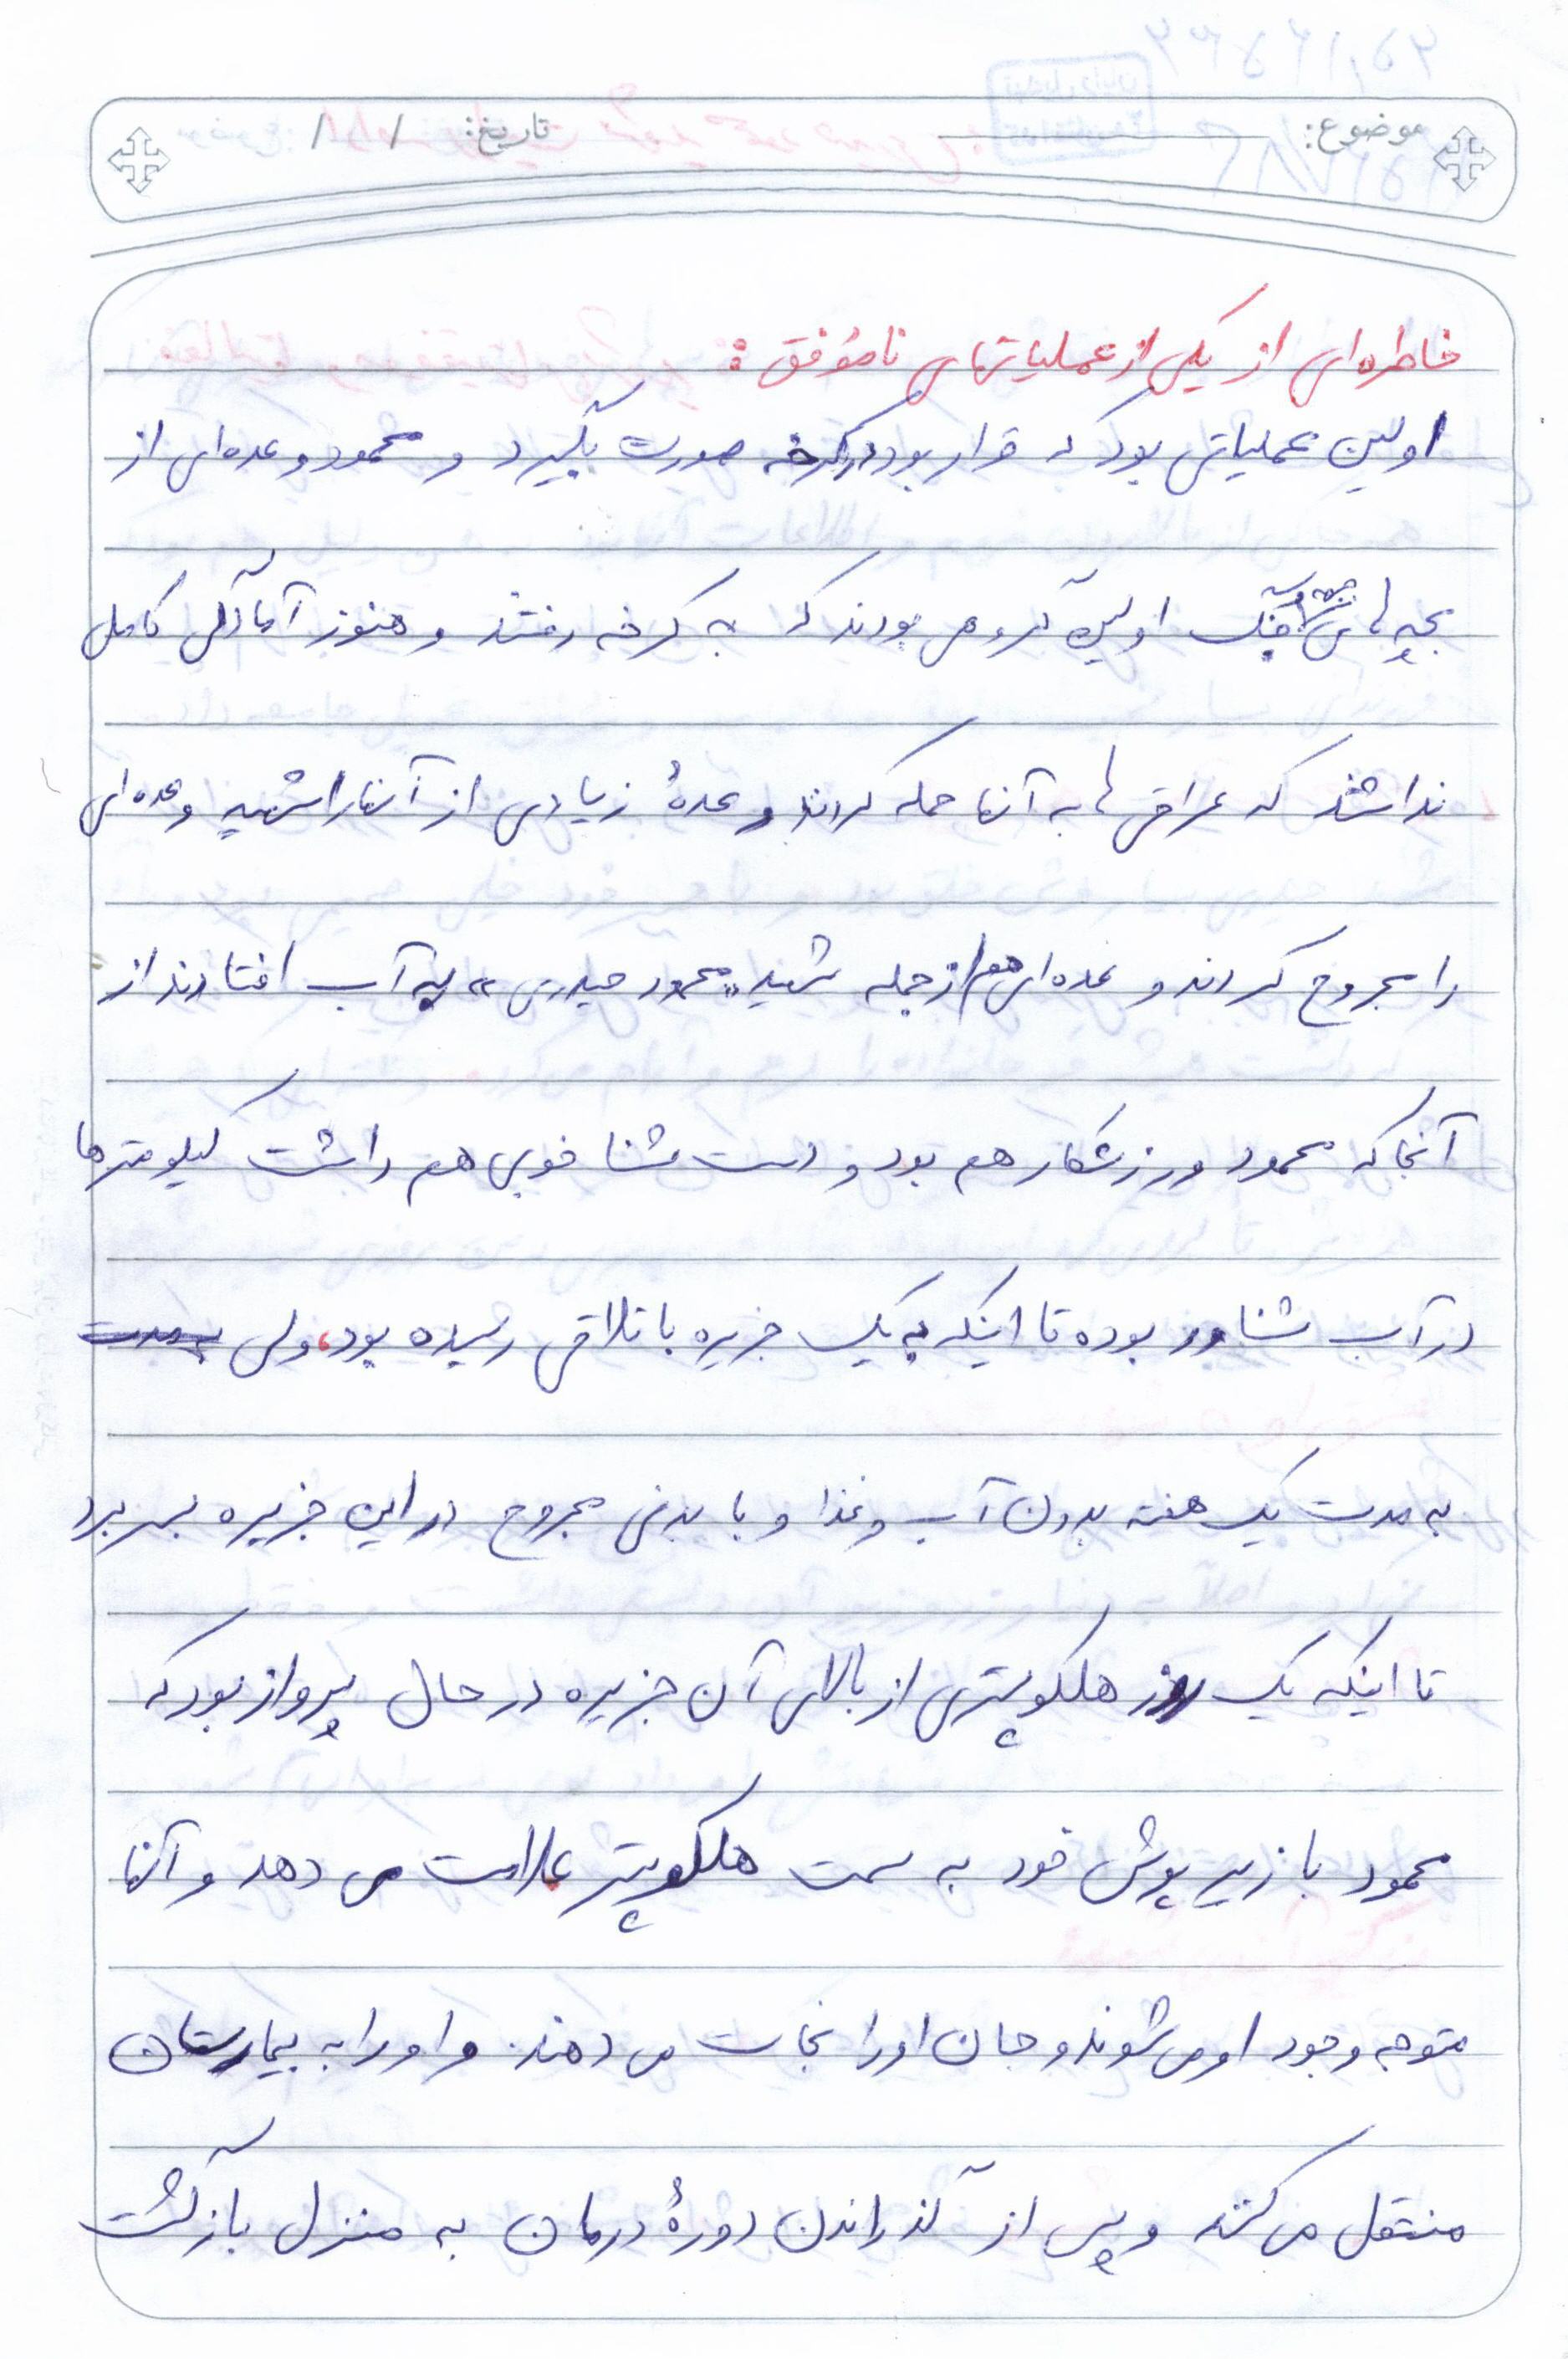 موضوع: تاریخ: / /
خاطره‌ای از یکی از عملیاتهای ناموفق :
اولین عملیاتی بود که قرار بود در کرخه صورت بگیرد و محمود و عده‌ای از
بچه‌های جبهه و جنگ اولین گروهی بودند که به کرخه رفتند و هنوز آمادگی کامل
نداشتند که عراقی‌ها به آنها حمله کردند و عدهٔ زیادی از آنها را شهید و عده‌ای
را مجروح کردند و عده‌ای هم از جمله شهید «محمود حیدری» به آب افتادند از
آنجا که محمود ورزشکار هم بود و دست شنا خوبی هم داشت کیلومترها
در آب شناور بوده تا اینکه به یک جزیره باتلاقی رسیده بود، ولی به مدت
به مدت یک هفته بدون آب و غذا و با بدنی مجروح در این جزیره بسر برد
تا اینکه یک روز هلکوپتری از بالای آن جزیره در حال پرواز بود که
محمود با زیر پوش خود به سمت هلکوپتر علامت می دهد و آنها
متوجه وجود او می شوند و جان او را نجات می دهند. و او را به بیمارستان
منتقل می کنند و پس از گذراندن دورهٔ درمان به منزل بازگشت